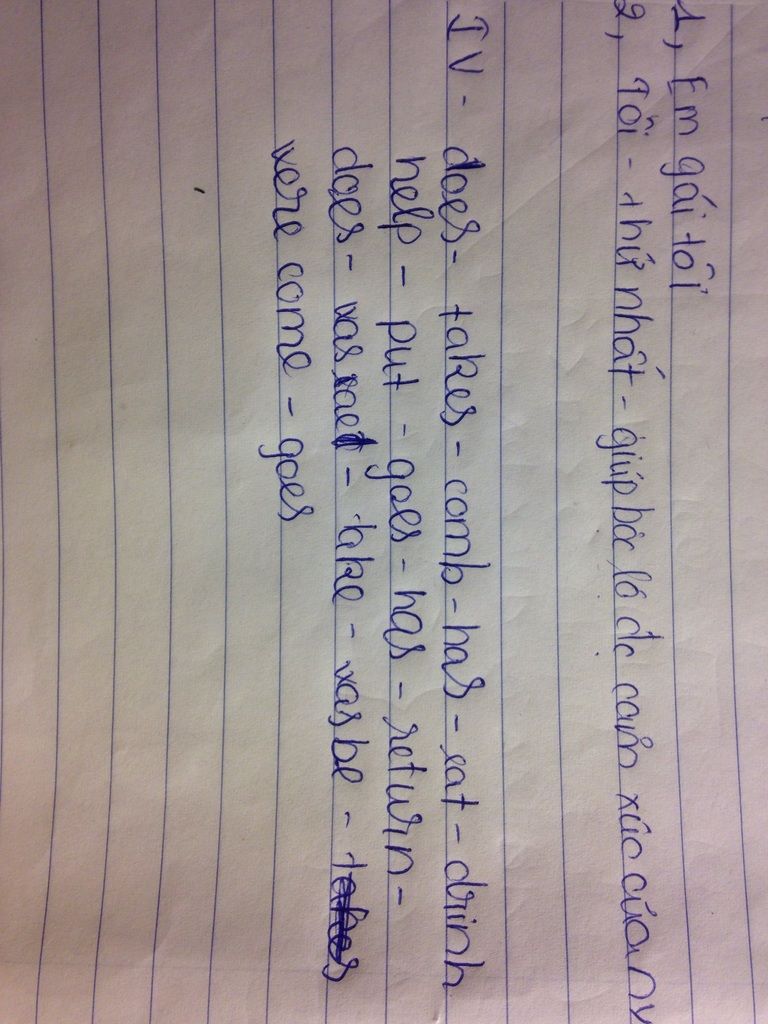 1, Em gái tôi
2, Tôi - thứ nhất - giúp bộc lộ đc cảm xúc của nv
IV - does - takes - comb - has - eat - drinh
help - put - goes - has - return -
does - was - take - was be -
were come - goes